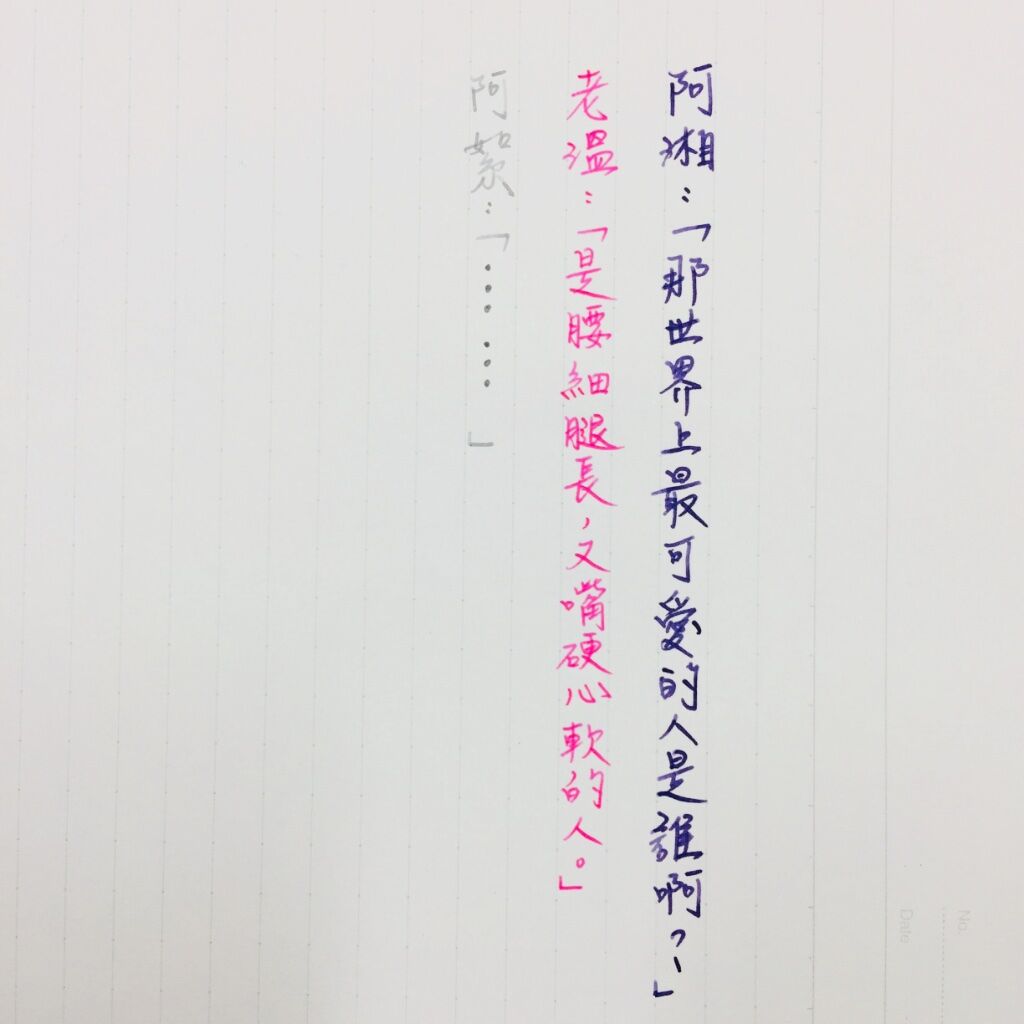 阿湘：「那世界上最可愛的人是誰啊？」
老溫：「是腰細腿長，又嘴硬心軟的人。」
阿絮：「……」
No.
Date